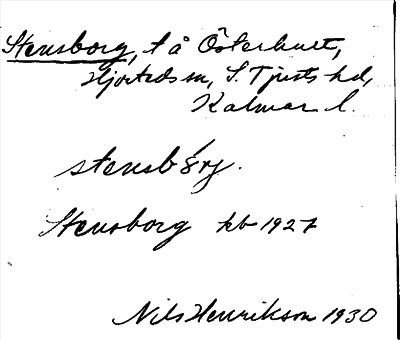 Stensborg, t å Österhult,
Hjorteds sn, S. Tjusts hd,
Kalmar l.
stensbórj.
Stensborg kb 1927
Nils Henrikson 1930